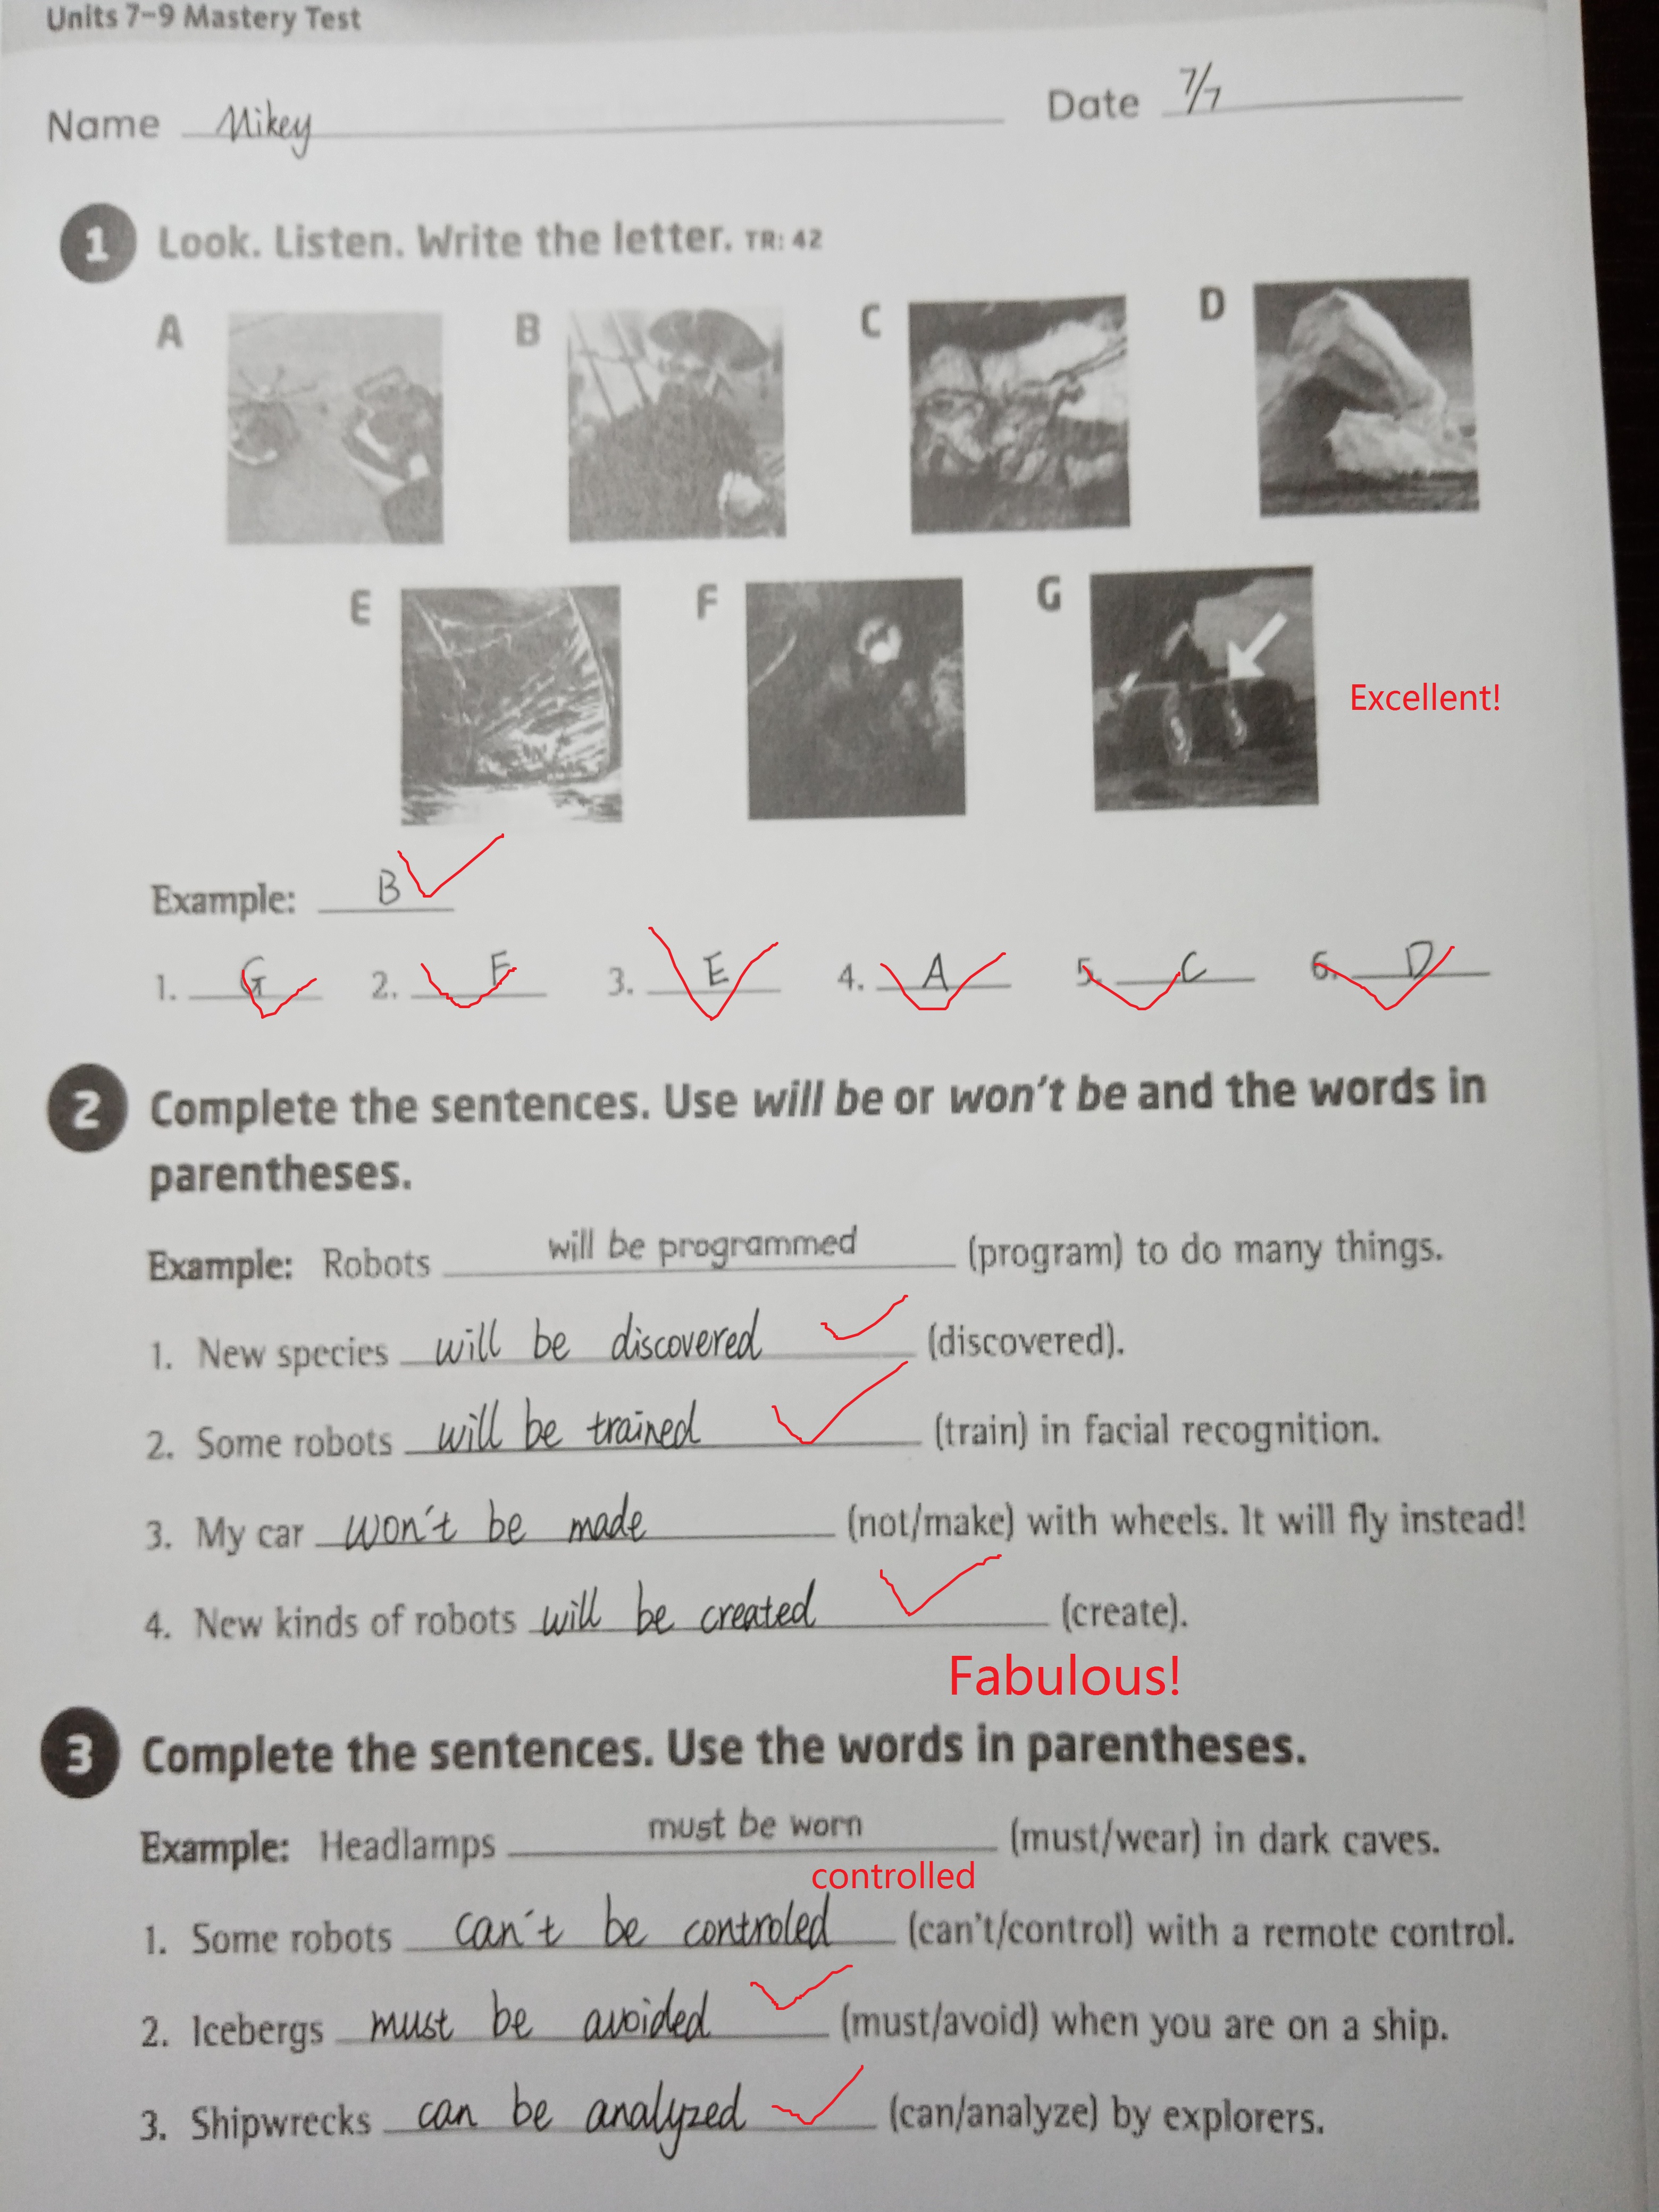 Units 7-9 Mastery Test
Name Mikey Date 7/7
1 Look. Listen. Write the letter. TR: 42
A B C D
E F G
Excellent!
Example: B
1. G 2. F 3. E 4. A 5. C 6. D
2 Complete the sentences. Use will be or won't be and the words in
parentheses.
Example: Robots will be programmed (program) to do many things.
1. New species will be discovered (discovered).
2. Some robots will be trained (train) in facial recognition.
3. My car won't be made (not/make) with wheels. It will fly instead!
4. New kinds of robots will be created (create).
Fabulous!
3 Complete the sentences. Use the words in parentheses.
Example: Headlamps must be worn (must/wear) in dark caves.
controlled
1. Some robots can't be controled (can't/control) with a remote control.
2. Icebergs must be avoided (must/avoid) when you are on a ship.
3. Shipwrecks can be analyzed (can/analyze) by explorers.